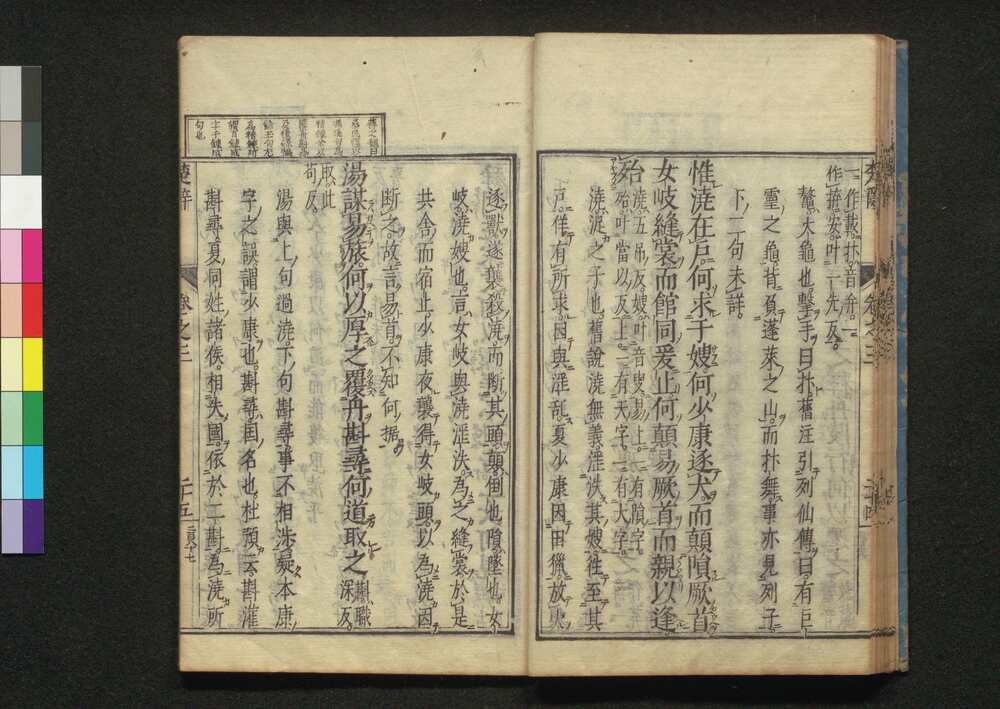 一作載抃音弁一
作拚安叶一先反
鼇大龜也擊手曰抃舊注引列仙傳曰有巨
靈之龜背負蓬萊之山而抃舞事亦見列子
下二句未詳
惟澆在戶何求于嫂何少康逐犬而顛隕厥首
女岐縫裳而館同爰止何顛易厥首而親以逢
殆
澆五弔反嫂叶音叟易上一有隕字
殆叶當以反上一有天字一有大字
澆浞之子也舊說澆無義淫泆其嫂往至其
戶佯有所求因與淫亂夏少康因田獵放犬
逐獸遂襲殺澆而斷其頭顛倒也隕墜也女
岐澆嫂也言女岐與澆淫泆為之縫裳於是
共舍而宿止少康夜襲得女岐頭以為澆因
斷之故言易首不知何據
湯謀易旅何以厚之覆舟斟尋何道取之
斟職深反
取此
苟反
湯與上句過澆下句斟尋事不相涉疑本康
字之誤謂少康也斟尋国名也杜預云斟灌
斟尋夏同姓諸侯相失國依於二斟為澆所
楚辭
卷之三
二十五